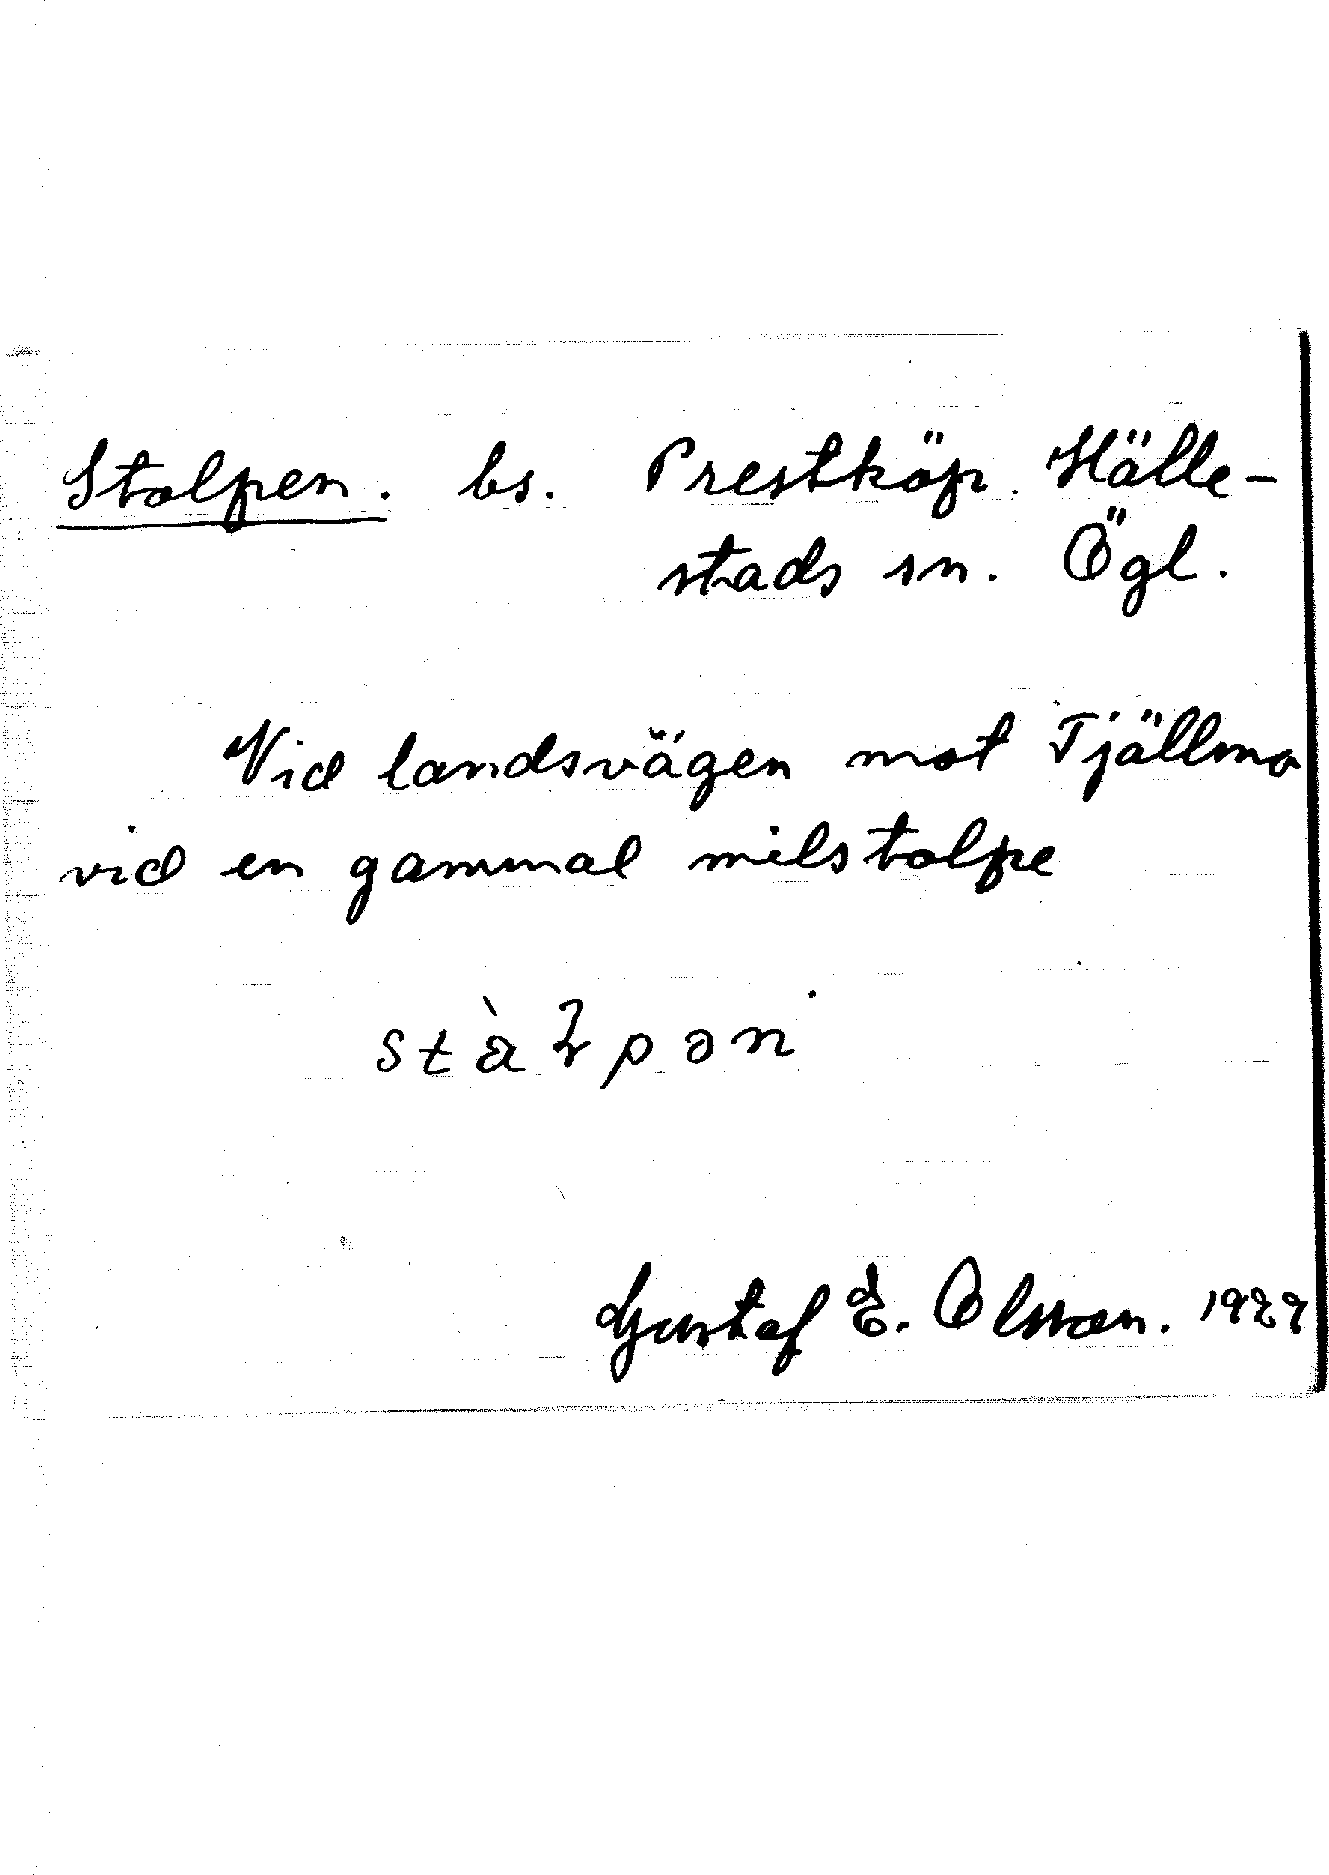 Stolpen. bs. Prestköp. Hälle-
stads sn. Ögl.
Vid landsvägen mot Tjällmo
vid en gammal milstolpe
Gustaf E. Olsson. 1929